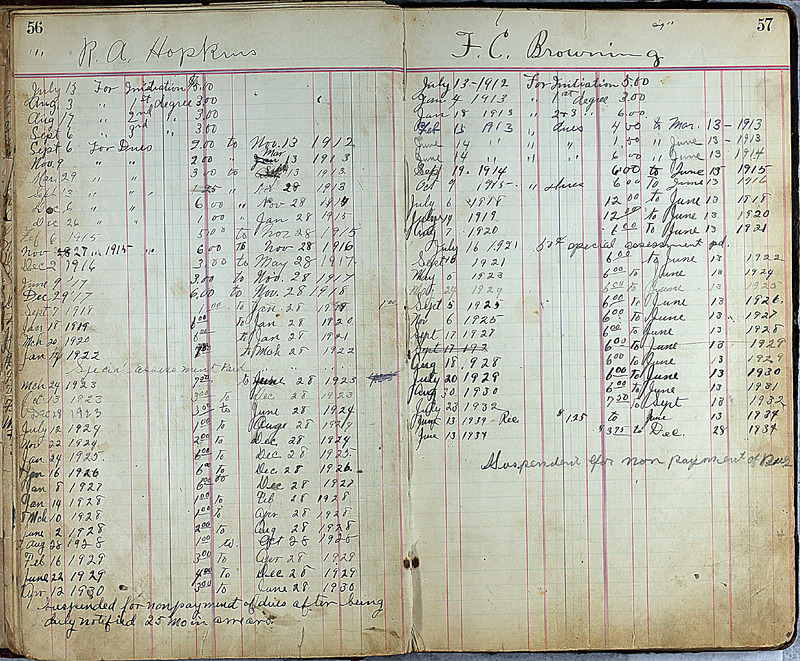 56
R. A. Hopkins
July 13 For Initiation 5.00
Aug. 3 " 1st degree 3.00
Aug 17 " 2nd " 3.00
Sept 6 " 3rd " 3.00
Sept 6 For Dues 9.00 to Nov. 13 1912
Nov. 9 " " 2.00 " Mar 13 1913
Mar. 29 " " 3.00 to Sept 13 1913
Sept 13 " " 1.25 " Nov 28 1913
Dec 6 " " 6.00 " Nov 28 1914
Dec 26 " " 1.00 " Jan 28 1915
Feb 6 1915 5.00 to Nov 28 1915
Nov 27 1915 " 6.00 to Nov 28 1916
Dec 2 1916 3.00 to May 28 1917
June 9 '17 3.00 to Nov. 28 1917
Dec 29 '17 6.00 to Nov. 28 1918
Sept 7 1918 1.00 to Jan 28
Jan 18 1919 6.00 to Jan 28 1920
Mch 20 1920 6.00 to Jan 28 1921
Jan 14 1922 to Mch 28 1922
Special assessment Paid
Mch 24 1923 7.00 to June 28 1923
Oct 13 1923 3.00 to Dec 28 1923
Dec 28 1923 3.00 to June 28 1924
July 12 1924 1.00 to Aug 28 1924
Nov 22 1924 2.00 to Dec 28 1924
Jan 24 1925 6.00 to Dec 28 1925
Jan 16 1926 6.00 to Dec 28 1926
Jan 8 1927 6.00 Dec 28 1927
Jan 14 1928 1.00 to Feb 28 1928
Mch 10 1928 1.00 to Apr 28 1928
June 2 1928 2.00 to Aug 28 1928
Aug 28 1928 1.00 to Oct 28 1928
Feb 16 1929 3.00 to Apr 28 1929
June 22 1929 4.00 to Dec 28 1929
Apr 12 1930 3.00 to June 28 1930
Suspended for nonpayment of dues after being
duly notified 25 mo in arrears.
57
F. C. Browning
July 13 - 1912 For Initiation 5.00
Jan 4 1913 " 1st degree 3.00
Jan 18 1913 " 2&3 " 6.00
Feb 15 1913 " dues 4.00 to Mar. 13 - 1913
June 14 " " " 1.50 " June 13 - 1913
June 14 " " " 6.00 " June 13 1914
Sept 19. 1914 6.00 to June 13 1915
Oct 9 1915 - " dues 6.00 to June 13 1916
July 6 1918 12.00 to June 13 1918
July 19 1919 12.00 to June 13 1920
Aug 7 1920 6.00 to June 13 1921
July 16 1921 50¢ special assessment pd.
Sept 10 1921 6.00 to June 13 1922
May 5 1923 6.00 to June 13 1924
Mar 29 1924 6.00 to June 13 1925
Sept 5 1925 6.00 to June 13 1926
Nov 6 1925 6.00 to June 13 1927
Sept 17 1927 6.00 to June 13 1928
Sept 17 192 6.00 to June 13 1929
Aug 18, 1928 6.00 to June 13 1929
July 20 1929 6.00 to June 13 1930
Aug 30 1930 6.00 to June 13 1931
July 23 1932 7.50 to Sept 13 1932
June 13 1934 Rec $1.25 to June 13 1934
June 13 1934 $3.75 to Dec. 28 1934
Suspended for non payment of Dues